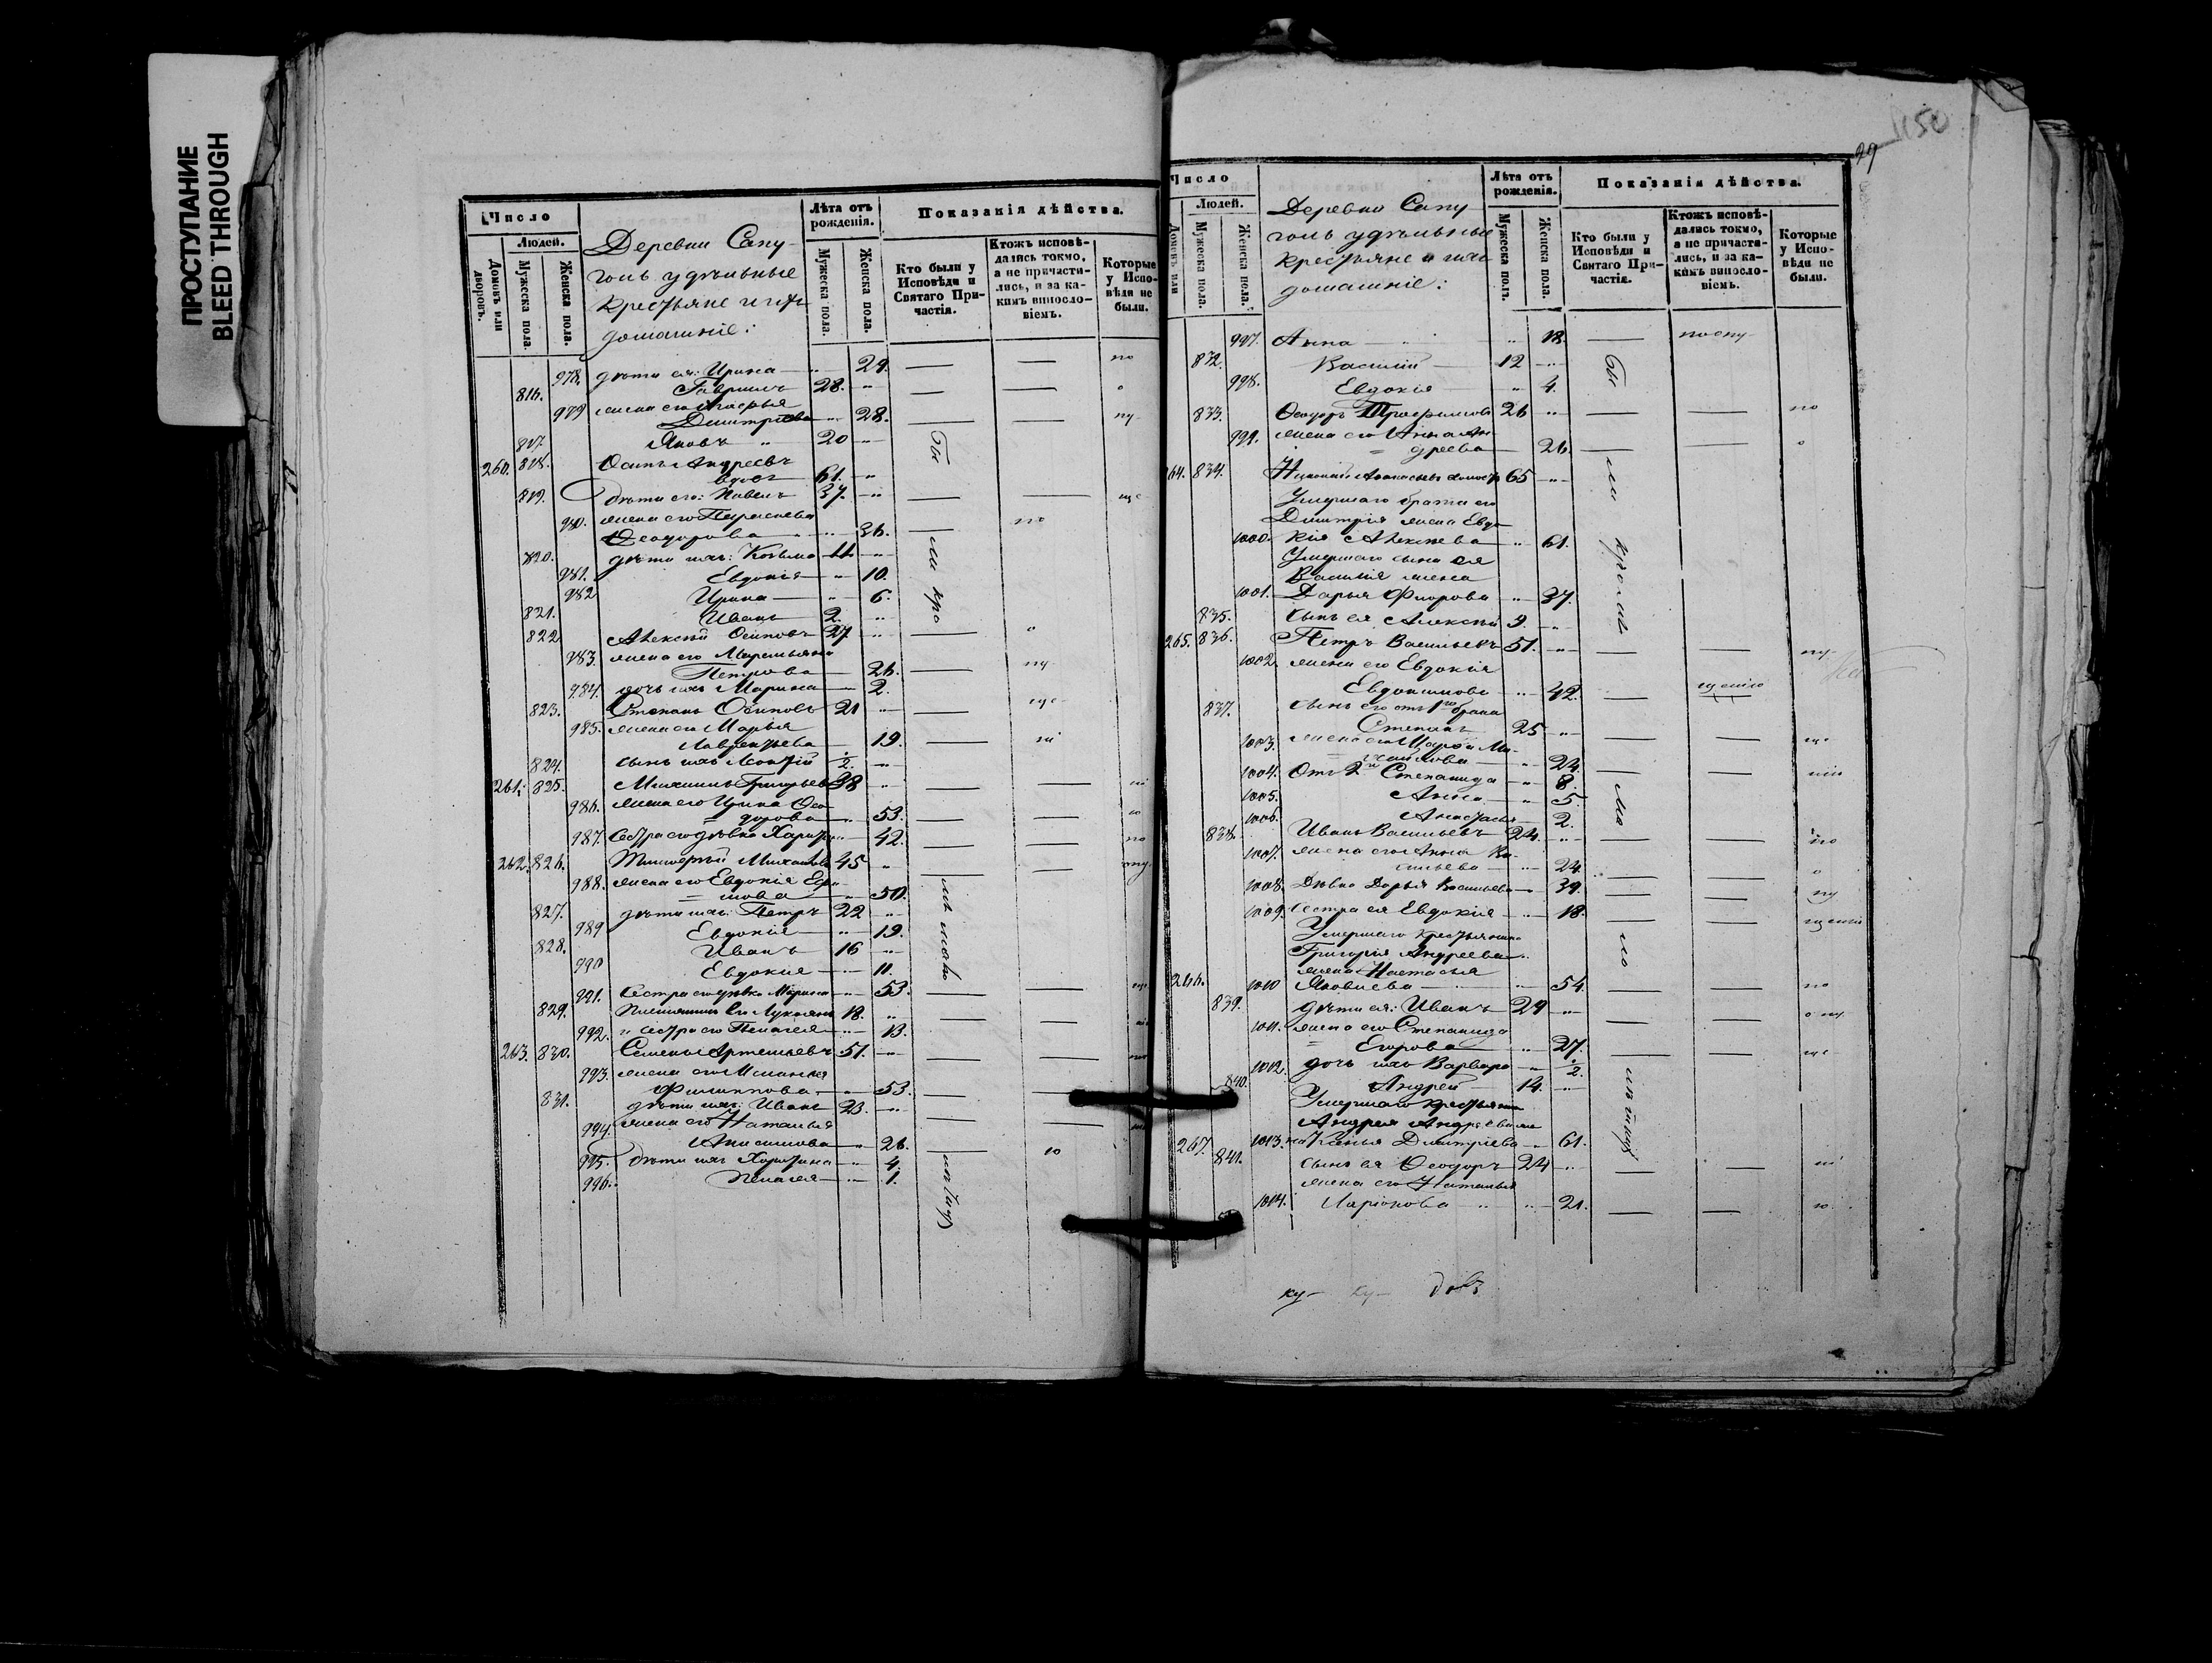 ПРОСТУПАНИЕ
BLEED THROUGH
Число
Людей.
Домовъ или дворовъ.
Мужеска пола.
Женска пола.
Деревни Сапу-
голь удѣльные
крестьяне и ихъ
домашніе:
Лѣта отъ рожденія.
Мужеска пола.
Женска пола.
Показанія дѣйства.
Кто были у Исповѣди и Святаго Причастія.
Ктожъ исповѣдались токмо, а не причастились, и за какимъ винословіемъ.
Которые у Исповѣди не были.
978. дѣти ея: Ирина 29.
816. Гавріилъ 28.
979 жена его Марья
Димитріева 28.
817. Яковъ 20
260. 818. Осипъ Андреевъ
вдовъ 61.
819. дѣти его: Павелъ 37.
980. жена его Параскева
Ѳеодорова 36.
820. дѣти ихъ: Козьма 11
981. Евдокія 10.
982 Ирина 6.
821. Иванъ 2.
822 Алексѣй Осиповъ 27
983. жена его Маремьяна
Петрова 26.
984. дочь ихъ Марина 2.
823. Степанъ Осиповъ 21
985. жена его Марья
Лаврентьева 19.
824. сынъ ихъ Леонтій ½
261. 825. Михаилъ Григорьевъ 38
986. жена его Ирина Ѳео-
дорова 53.
987. Сестра его дѣвка Харитина 42.
262. 826. Тимоѳей Михайловъ 45
988. жена его Евдокія Ефи-
мова 50.
827. дѣти ихъ: Петръ 22
989 Евдокія 19.
828. Иванъ 16
990 Евдокія 11.
991. Сестра его дѣвка Марина 53.
829. Племянникъ его Лукьянъ 18.
992. и сестра его Пелагея 13.
263. 830. Семенъ Артемьевъ 51.
993. жена его Меланья
Филиппова 53.
831. дѣти ихъ: Иванъ 23.
994. жена его Наталья
Анисимова 26.
995. дѣти ихъ Харитина 4.
996. Пелагея 1.
1150
29
Число
Людей.
Домовъ или
Мужеска пола.
Женска пола.
Деревни Сапу-
голь удѣльные
крестьяне и ихъ
домашніе:
Лѣта отъ рожденія.
Мужеска полъ.
Женска пола.
Показанія дѣйства.
Кто были у Исповѣди и Святаго Причастія.
Ктожъ исповѣдались токмо, а не причастились, и за какимъ винословіемъ.
Которые у Исповѣди не были.
997. Анна 18.
832. Василій 12
998. Евдокія 4.
833. Ѳеодоръ Трофимовъ 26
999. жена его Анна Ан-
дреева 26.
264. 834. 65
Умершаго брата его
Димитрія жена Евдо-
1000. кія Алексѣева 61.
Умершаго сына ея
Василія жена
1001. Дарья Флорова 37.
835. сынъ ея Алексѣй 9.
265. 836. Петръ Васильевъ 51.
1002. жена его Евдокія
Евдокимова 42.
837. сынъ его отъ 1го брака
Степанъ 25
1003. жена его Марѳа Ми-
хайлова 24.
1004. Отъ 2го Степанида 8.
1005. Анна 5.
1006. Анастасія 2.
838. Иванъ Васильевъ 24.
1007. жена его Анна Ва-
сильева 24.
1008. Дѣвка Дарья Васильева 39.
1009. сестра ея Евдокія 18.
Умершаго крестьянина
Григорія Андреева
жена Настасья
266. 1010 Яковлева 54.
839. дѣти ея: Иванъ 29
1011. жена его Степанида
Егорова 27.
1012. дочь ихъ Варвара ½
840. Андрей 14.
Умершаго крестьянина
Андрея Андреева же
267. 1013. на Ксенья Димитріева 61.
841. сынъ ея Ѳеодоръ 24
жена его Наталья
1014. Ларіонова 21.